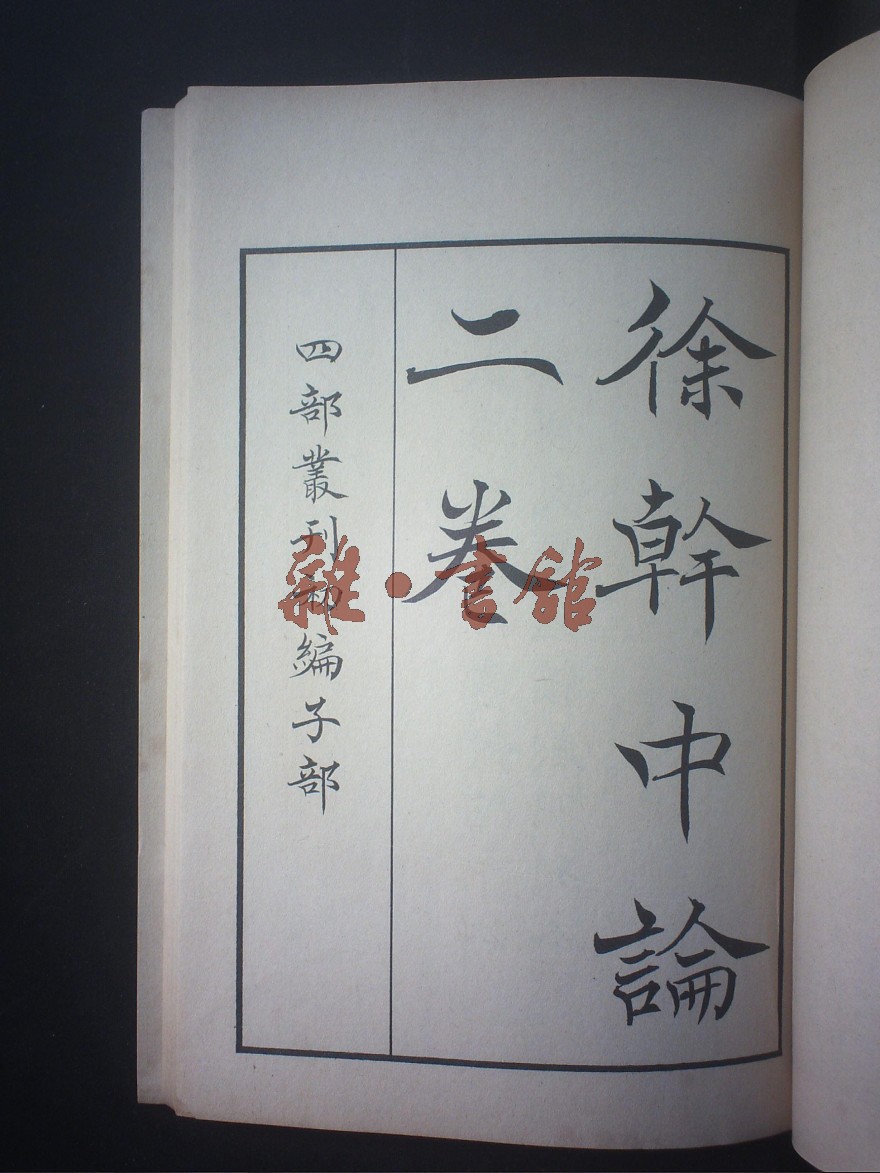 徐幹中論
二卷
四部叢刊初編子部
雜·書館